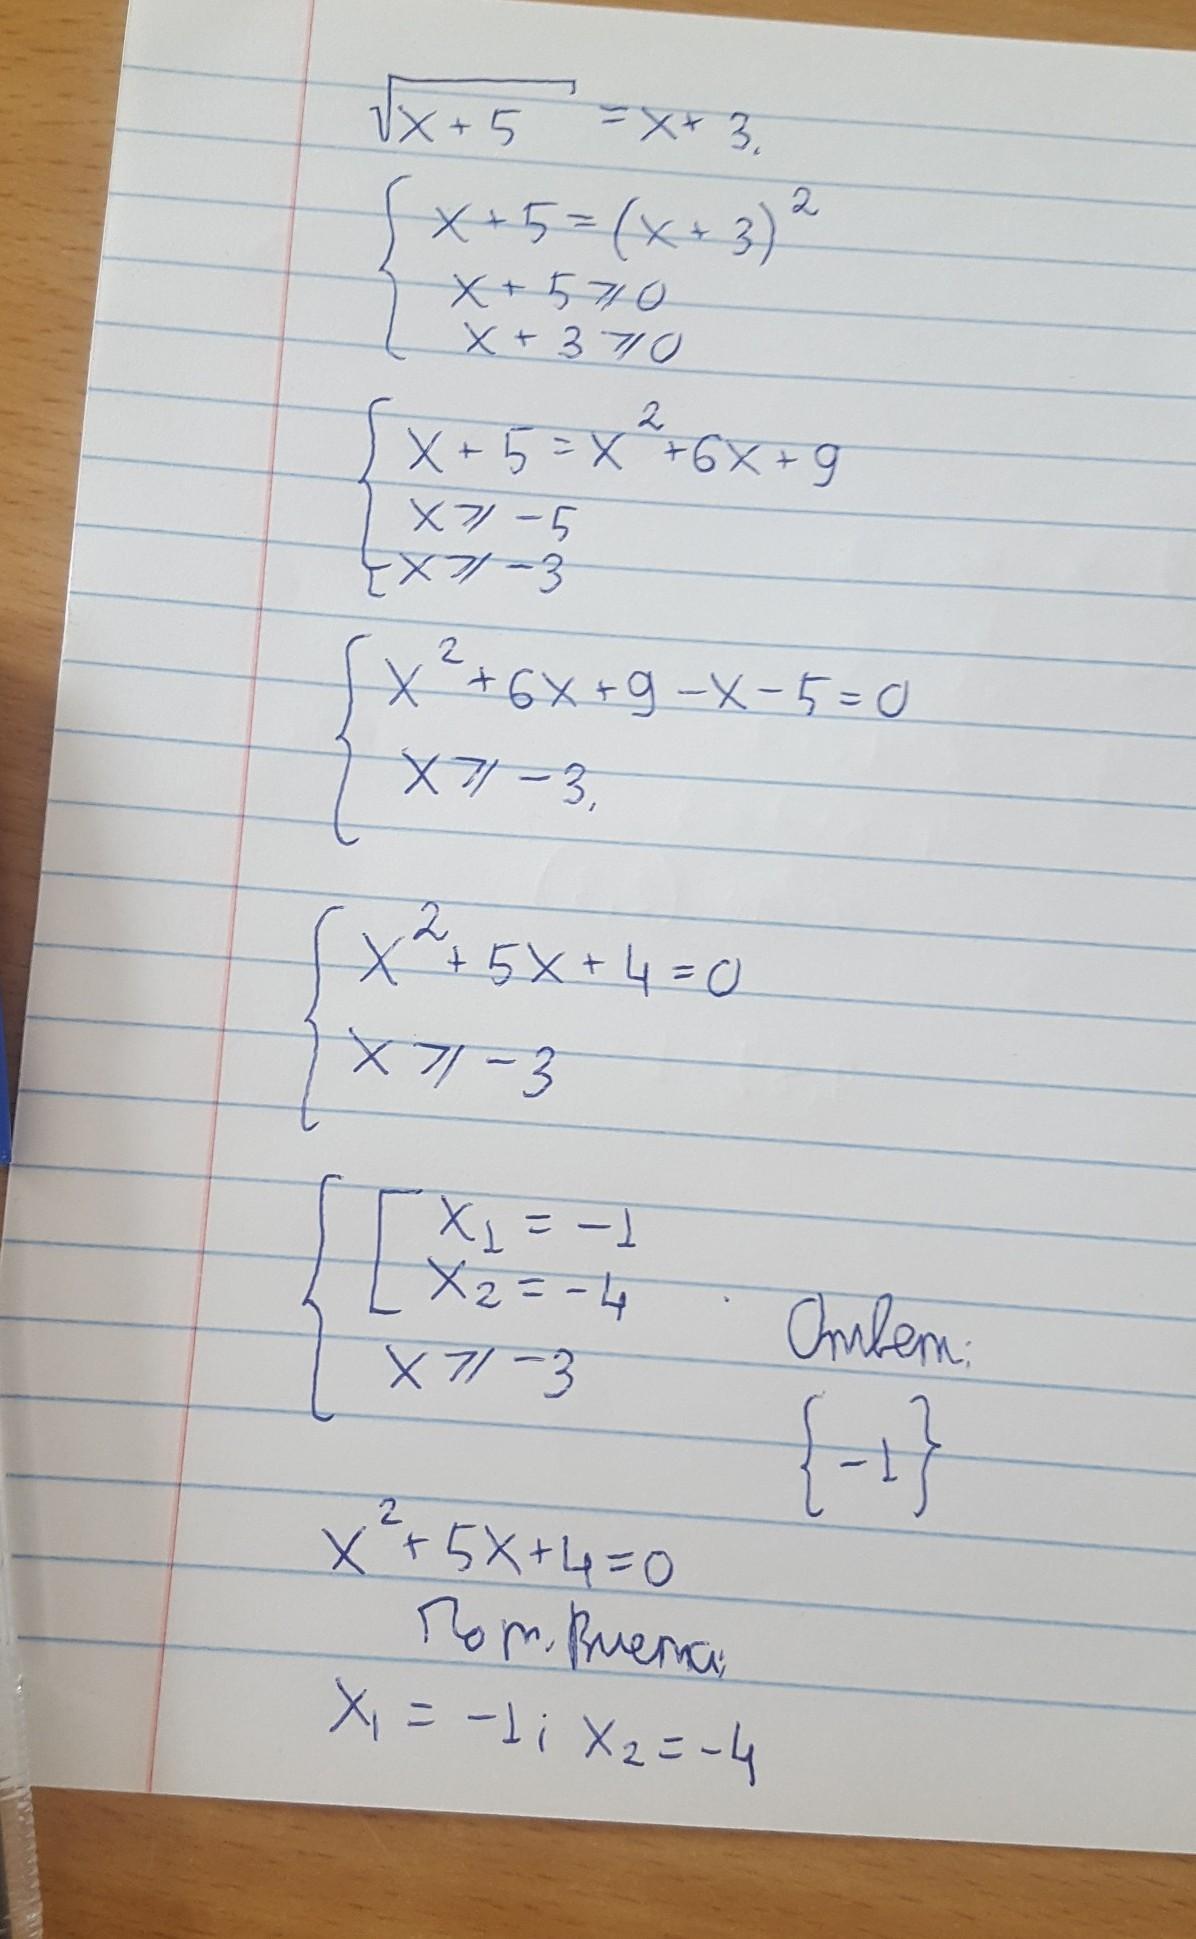 √x+5 = x+3.
x+5=(x+3)²
x+5⩾0
x+3⩾0
x+5=x²+6x+9
x⩾-5
x⩾-3
x²+6x+9-x-5=0
x⩾-3.
x²+5x+4=0
x⩾-3
x₁=-1
x₂=-4
x⩾-3
Ответ:
{-1}
x²+5x+4=0
По т. Виета:
x₁=-1; x₂=-4